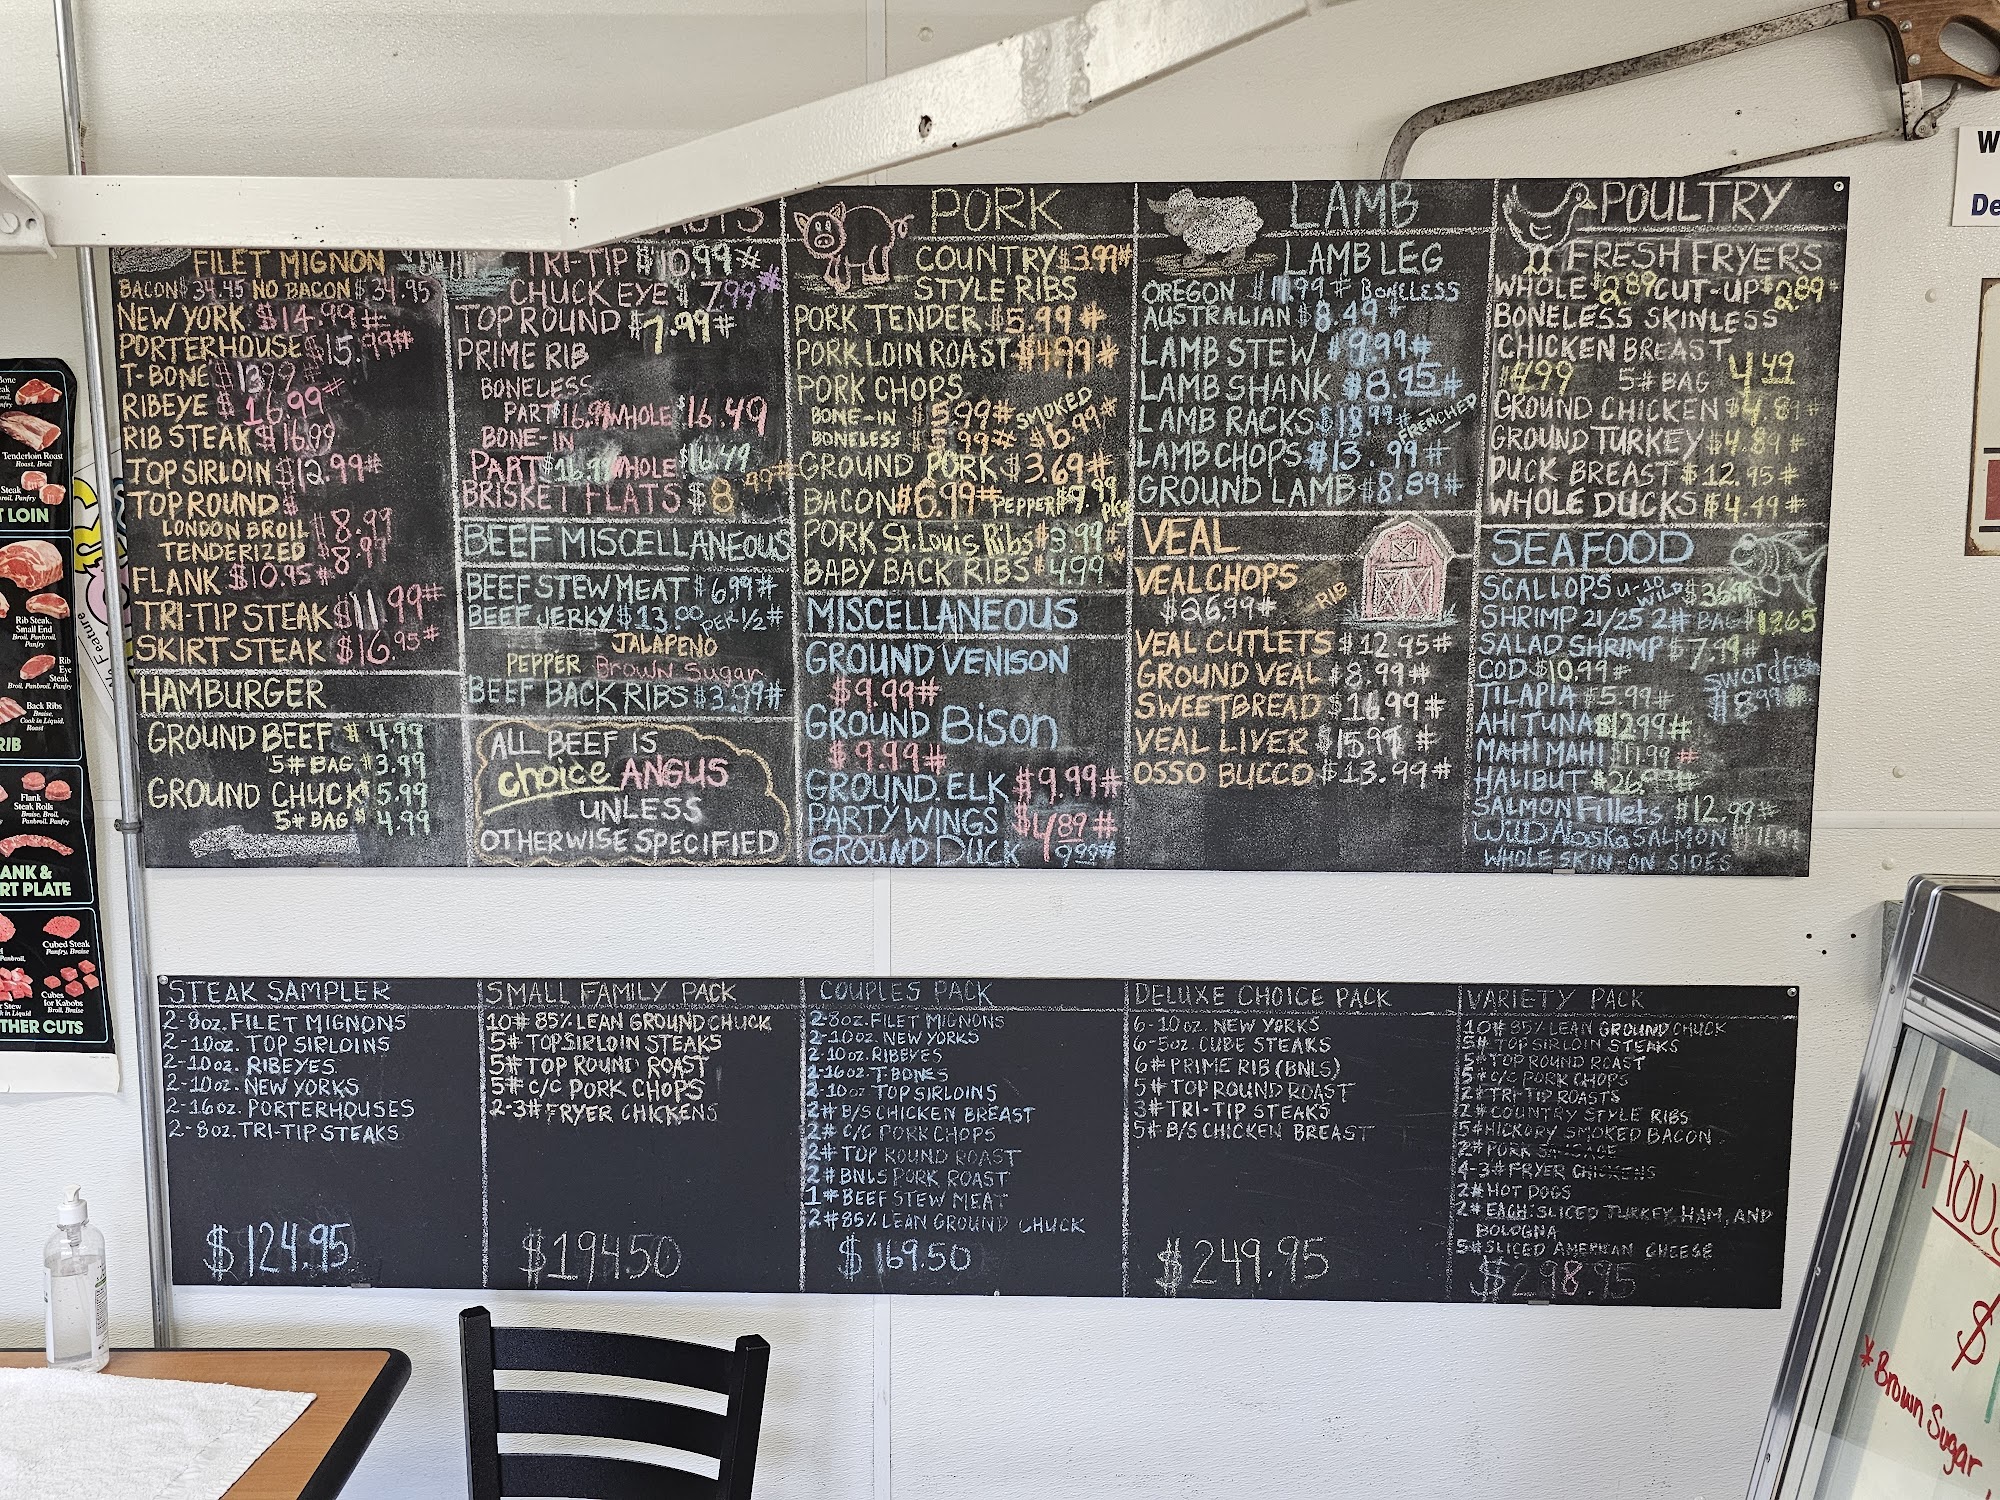 FILET MIGNON
BACON $34.95 NO BACON $34.95
NEW YORK $14.99#
PORTERHOUSE $15.99#
T-BONE $13.99#
RIBEYE $16.99#
RIB STEAK $16.99
TOP SIRLOIN $12.99#
TOP ROUND $
LONDON BROIL $8.99
TENDERIZED $8.99
FLANK $10.95#
TRI-TIP STEAK $11.99#
SKIRT STEAK $16.95#
HAMBURGER
GROUND BEEF $4.99
5# BAG $3.99
GROUND CHUCK $5.99
5# BAG $4.99
TRI-TIP $10.99#
CHUCK EYE $7.99#
TOP ROUND $7.99#
PRIME RIB
BONELESS
PART $16.99 WHOLE $16.49
BONE-IN
PART $16.99 WHOLE $16.49
BRISKET FLATS $8.49#
BEEF MISCELLANEOUS
BEEF STEW MEAT $6.99#
BEEF JERKY $13.00 PER 1/2#
JALAPENO
PEPPER Brown Sugar
BEEF BACK RIBS $3.99#
ALL BEEF IS
choice ANGUS
UNLESS
OTHERWISE SPECIFIED
PORK
COUNTRY $3.99#
STYLE RIBS
PORK TENDER $5.99#
PORK LOIN ROAST $4.99#
PORK CHOPS
BONE-IN $5.99# SMOKED
BONELESS $5.99# $6.99#
GROUND PORK $3.69#
BACON $6.99# PEPPER $9.99 pkg
PORK St. Louis Ribs $3.99#
BABY BACK RIBS $4.99
MISCELLANEOUS
GROUND VENISON
$9.99#
GROUND BISON
$9.99#
GROUND ELK $9.99#
PARTY WINGS $4.89#
GROUND DUCK 9.99#
LAMB
LAMB LEG
OREGON $11.99# BONELESS
AUSTRALIAN $8.49#
LAMB STEW $9.99#
LAMB SHANK $8.95#
LAMB RACKS $18.99# FRENCHED
LAMB CHOPS $13.99#
GROUND LAMB $8.89#
VEAL
VEAL CHOPS
$26.99# RIB
VEAL CUTLETS $12.95#
GROUND VEAL $8.99#
SWEETBREAD $16.99#
VEAL LIVER $15.99#
OSSO BUCCO $13.99#
POULTRY
FRESH FRYERS
WHOLE $2.89 CUT-UP $2.89#
BONELESS SKINLESS
CHICKEN BREAST
$4.99 5# BAG 4.49
GROUND CHICKEN $4.89#
GROUND TURKEY $4.89#
DUCK BREAST $12.95#
WHOLE DUCKS $4.49#
SEAFOOD
SCALLOPS U-10 WILD
SHRIMP 21/25 2# BAG $12.65
SALAD SHRIMP $7.99#
COD $10.99#
Swordfish
$18.99#
TILAPIA $5.99#
AHI TUNA $12.99#
MAHI MAHI $11.99#
HALIBUT
SALMON Fillets $12.99#
Wild Alaska SALMON
WHOLE SKIN-ON SIDES
STEAK SAMPLER
2-8oz. FILET MIGNONS
2-10oz. TOP SIRLOINS
2-10oz. RIBEYES
2-10oz. NEW YORKS
2-16oz. PORTERHOUSES
2-8oz. TRI-TIP STEAKS
$124.95
SMALL FAMILY PACK
10# 85% LEAN GROUND CHUCK
5# TOP SIRLOIN STEAKS
5# TOP ROUND ROAST
5# C/C PORK CHOPS
2-3# FRYER CHICKENS
$194.50
COUPLES PACK
2-8oz. FILET MIGNONS
2-10oz. NEW YORKS
2-10oz. RIBEYES
2-16oz. T-BONES
2-10oz TOP SIRLOINS
2# B/S CHICKEN BREAST
2# C/C PORK CHOPS
2# TOP ROUND ROAST
2# BNLS PORK ROAST
1# BEEF STEW MEAT
2# 85% LEAN GROUND CHUCK
$169.50
DELUXE CHOICE PACK
6-10oz. NEW YORKS
6-5oz. CUBE STEAKS
6# PRIME RIB (BNLS)
5# TOP ROUND ROAST
3# TRI-TIP STEAKS
5# B/S CHICKEN BREAST
$249.95
VARIETY PACK
10# 85% LEAN GROUND CHUCK
5# TOP SIRLOIN STEAKS
5# TOP ROUND ROAST
5# C/C PORK CHOPS
2# TRI-TIP ROASTS
2# COUNTRY STYLE RIBS
5# HICKORY SMOKED BACON
2# PORK SAUSAGE
4-3# FRYER CHICKENS
2# HOT DOGS
2# EACH: SLICED TURKEY, HAM, AND
BOLOGNA
5# SLICED AMERICAN CHEESE
$298.95
Tenderloin Roast
Roast, Broil
Steak
T LOIN
Rib Steak,
Small End
Broil, Panbroil,
Panfry
Rib
Eye
Steak
Broil, Panbroil, Panfry
Back Ribs
Braise,
Cook in Liquid,
Roast
RIB
Flank
Steak Rolls
Braise, Broil,
Panbroil, Panfry
ANK &
RT PLATE
Cubed Steak
Panfry, Braise
Cubes
for Kabobs
Broil, Braise
THER CUTS
Feature
W
De
* Hous
$
* Brown Sugar